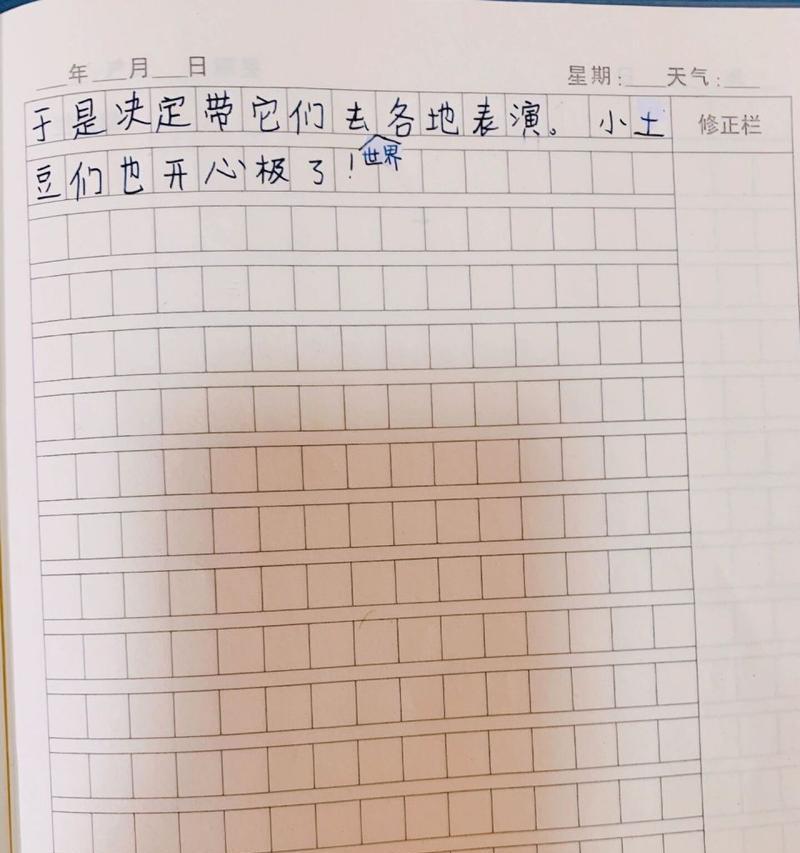 年 月 日 星期： 天气：
于是决定带它们去世界各地表演。小土 修正栏
豆们也开心极了！